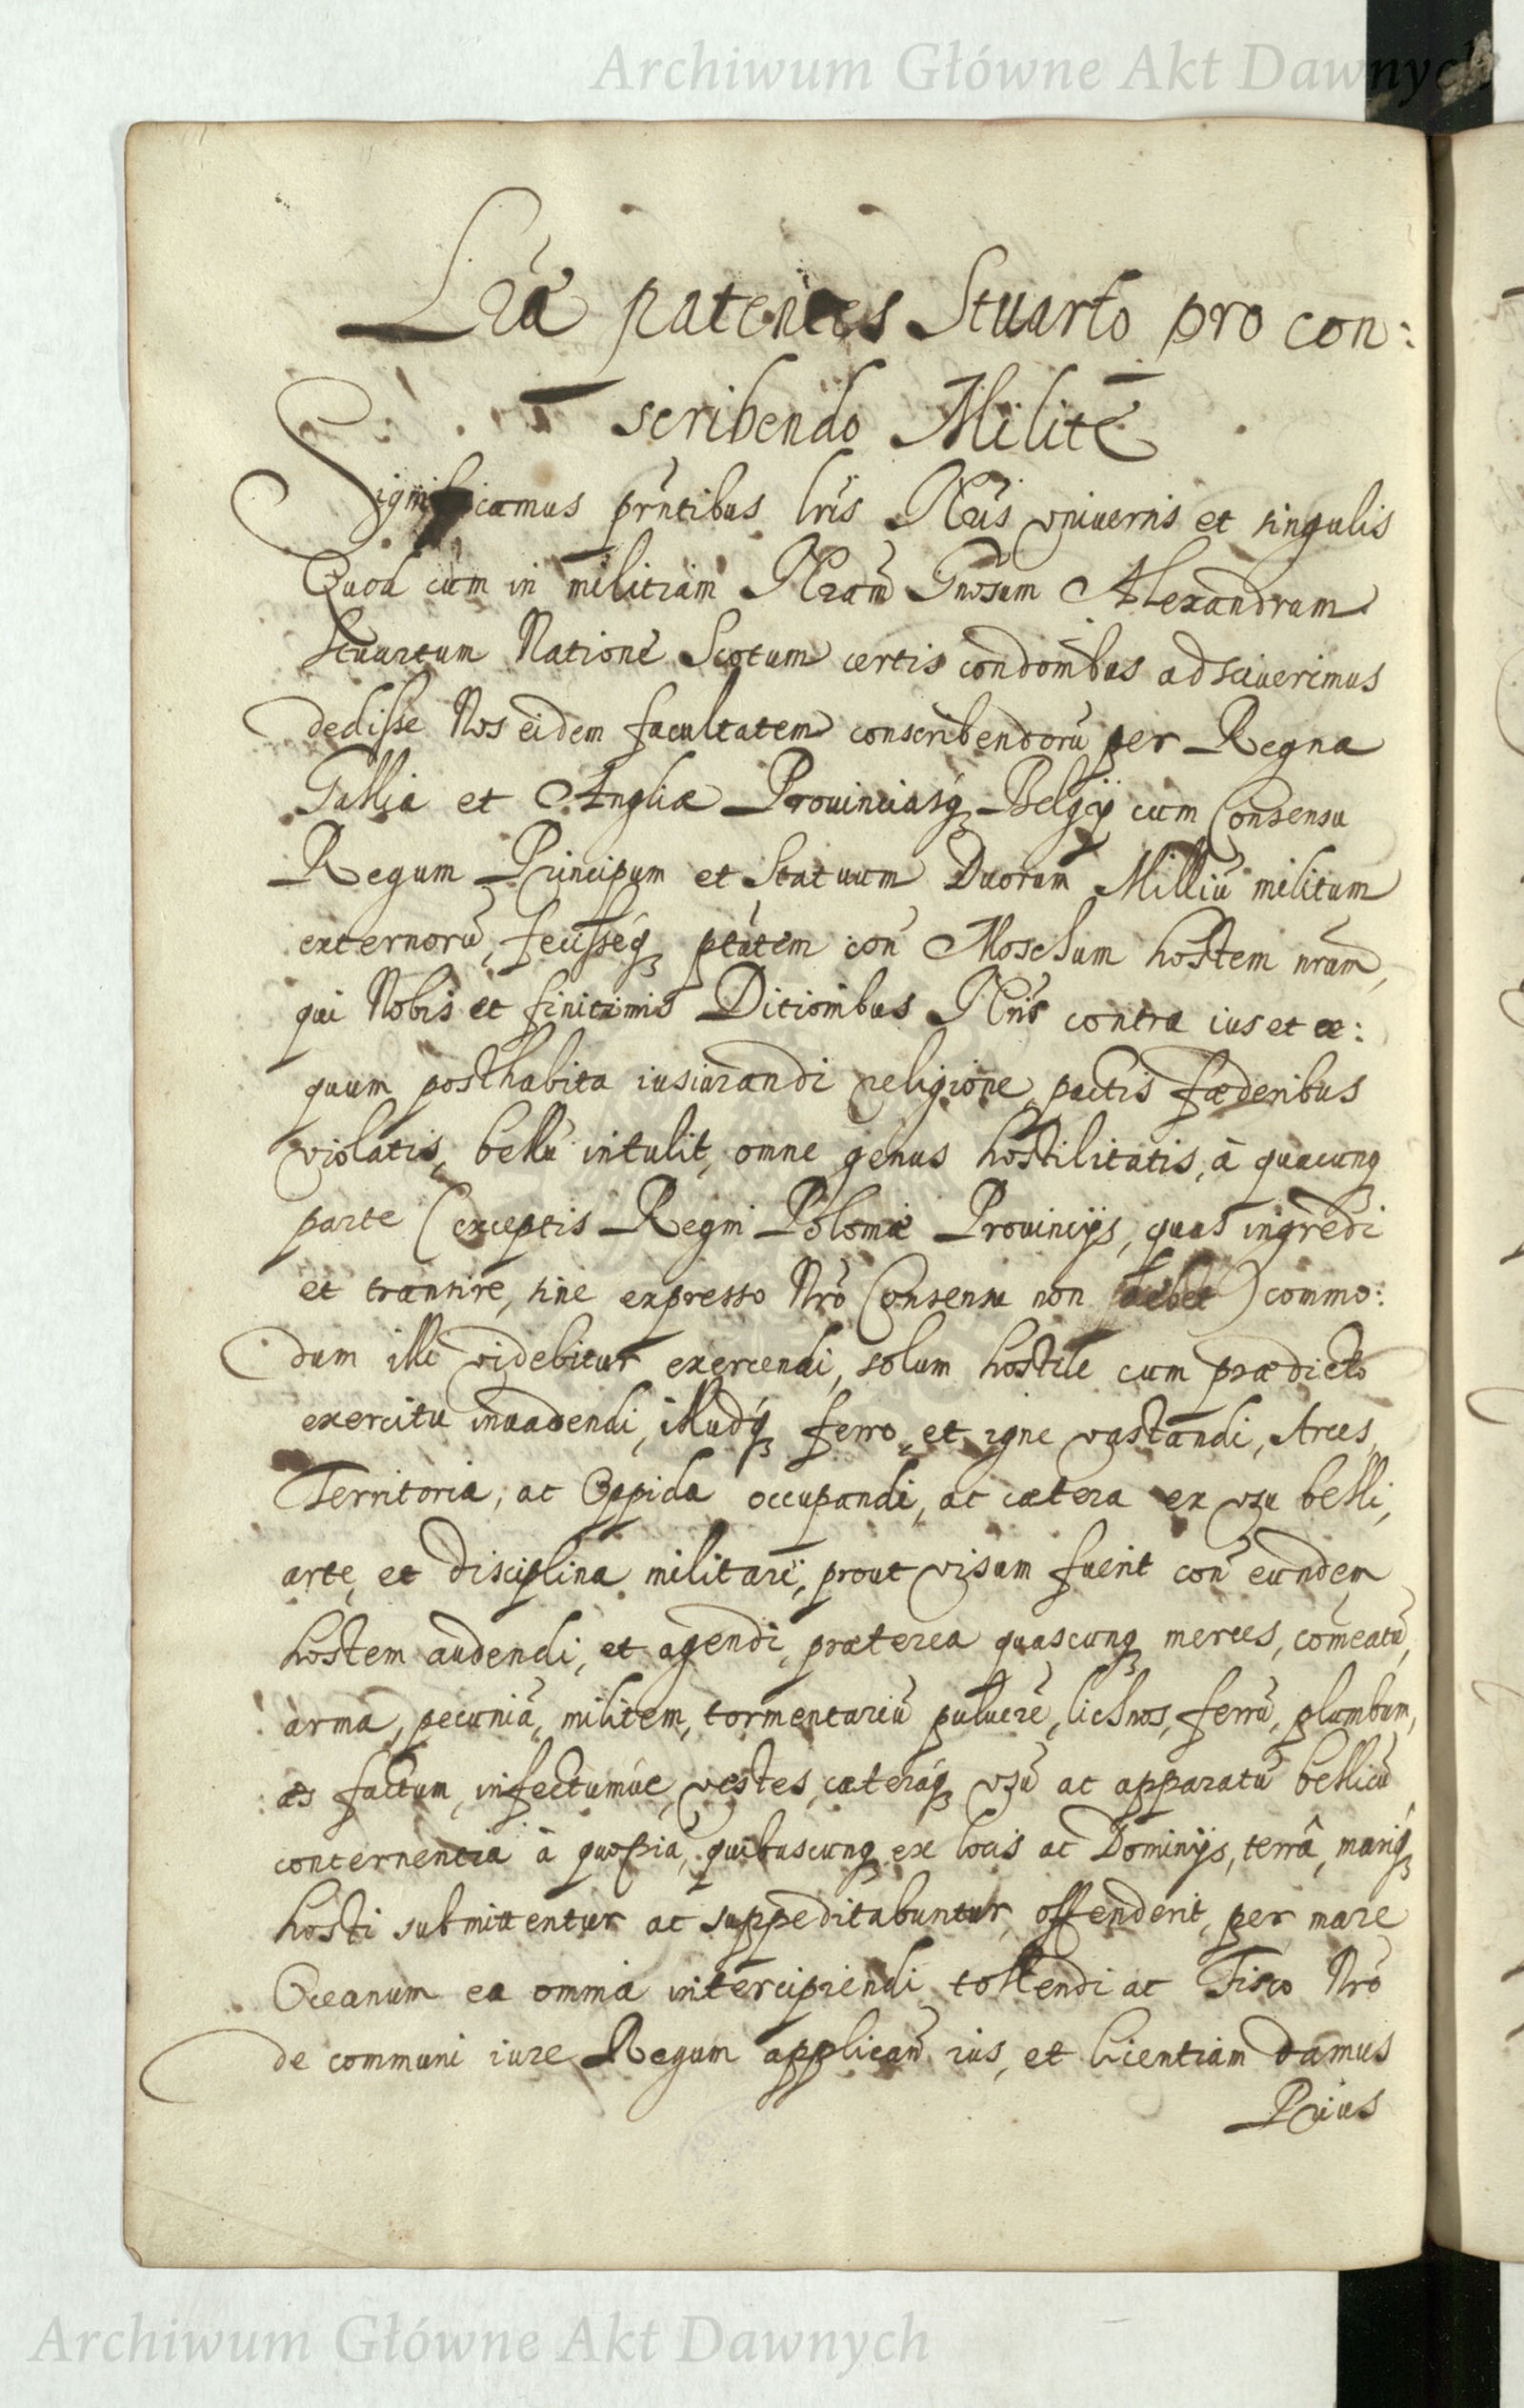 Archiwum Główne Akt Dawnych
Lrã patentes Stuarto pro con:
scribendo Milite
Significamus prñtibus lrĩs Nrĩs vniuersis et singulis
Quod cum in militiam Nram Gnosum Alexandrum
Stuartum Natione Scotum certis condombus adsciuerimus
dedisse Nos eidem facultatem conscribendorũ per Regna
Gallia et Angliæ Prouinciasq Belgij cum Consensu
Regum Principum et Statuum Duorum Milliũ militum
externorũ, fecisseq ptãtem con Moschum hostem nrũm,
qui Nobis et finitimis Ditionibus Nrĩs contra ius et æ:
quum posthabita iusiurandi religione pactis fœderibus
violatis, bellũ intulit, omne genus hostilitatis, à quacunq
parte (exceptis Regni Poloniæ Prouincijs, quas ingredi
et transire, sine expresso Nrõ Consensu non debet) commo:
dum illi videbitur exercendi, solum hostile cum prædicto
exercitu inuadendi, illudq ferro, et igne vastandi, Arces,
Territoria, ac Oppida occupandi, ac cætera ex vsu belli,
arte, et disciplina militari, prout visum fuerit con eundem
hostem audendi, et agendi, præterea quascunq merces, comeatũ,
arma, pecuniã, militem, tormentariũ puluerẽ, lichnos, ferrũ, plumbum,
æs factum, infectumue, vestes, cæteraq vsũ ac apparatũ bellicũ
concernentia à quopiã, quibuscunq ex locis ac Dominijs, terrâ, mariq
hosti submittentur ac suppeditabuntur, offenderit, per mare
Oceanum ea omnia intercipiendi, tollendi ac Fisco Nrõ
de communi iure Regum applicañ ius, et licentiam damus
Prius
Archiwum Główne Akt Dawnych